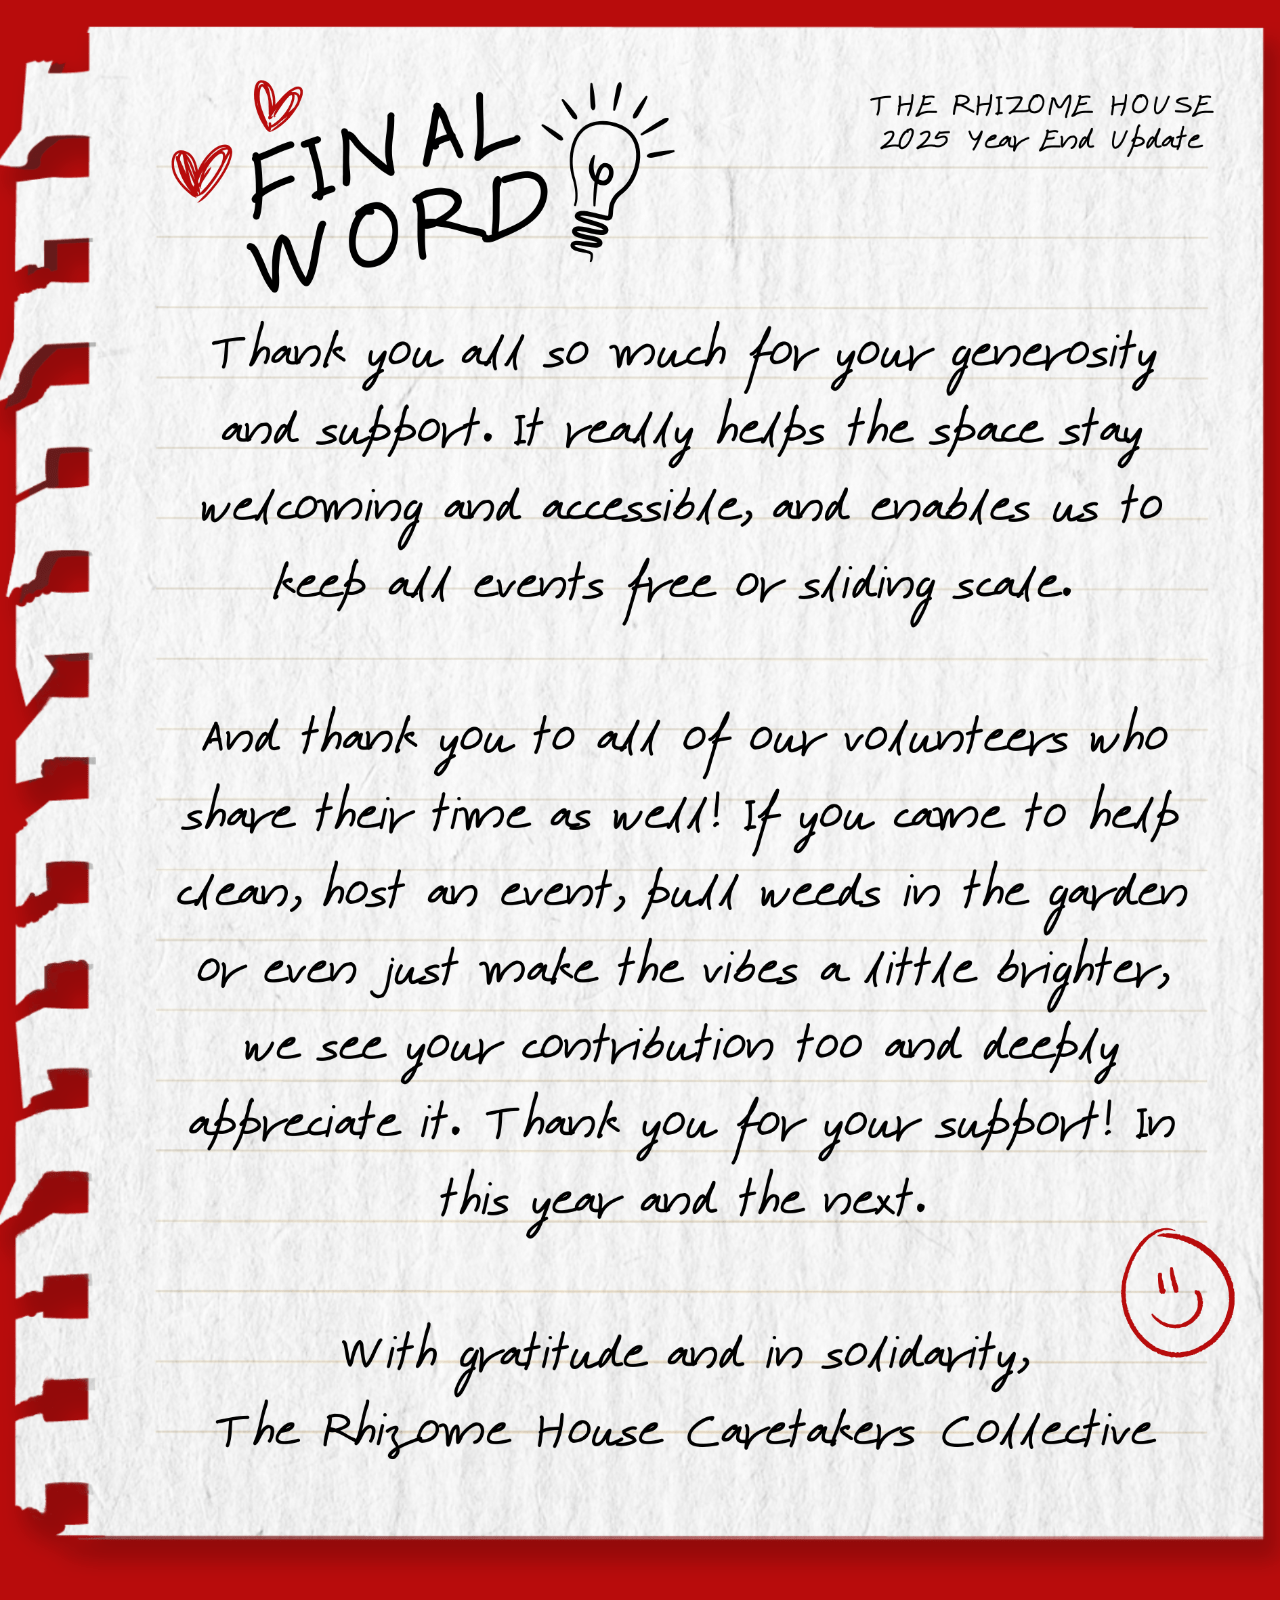 FINAL
WORD
THE RHIZOME HOUSE
2025 Year End Update
Thank you all so much for your generosity
and support. It really helps the space stay
welcoming and accessible, and enables us to
keep all events free or sliding scale.
And thank you to all of our volunteers who
share their time as well! If you came to help
clean, host an event, pull weeds in the garden
or even just make the vibes a little brighter,
we see your contribution too and deeply
appreciate it. Thank you for your support! In
this year and the next.
With gratitude and in solidarity,
The Rhizome House Caretakers Collective